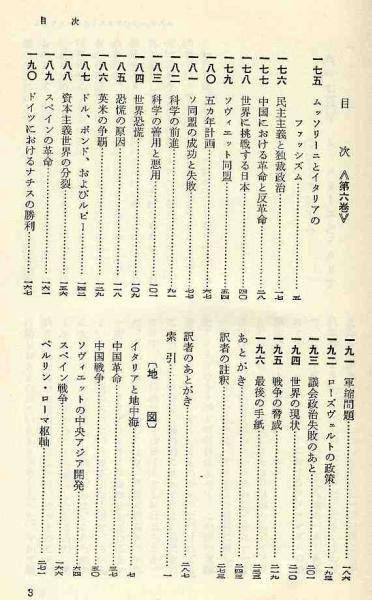 目次
目 次 《第六巻》
一七五 ムッソリーニとイタリアの
ファッシズム……五
一七六 民主主義と独裁政治……一七
一七七 中国における革命と反革命……二八
一七八 世界に挑戦する日本……四〇
一七九 ソヴィエット同盟……五四
一八〇 五カ年計画……
一八一 ソ同盟の成功と失敗……
一八二 科学の前進……九一
一八三 科学の善用と悪用……一〇一
一八四 世界恐慌……一〇九
一八五 恐慌の原因……一一八
一八六 英米の争覇……一二九
一八七 ドル、ポンド、およびルピー……
一八八 資本主義世界の分裂……一五六
一八九 スペインの革命……
一九〇 ドイツにおけるナチスの勝利……
一九一 軍縮問題……一八八
一九二 ローズヴェルトの政策……一九五
一九三 議会政治失敗のあと……二〇一
一九四 世界の現状……二一〇
一九五 戦争の脅威……二一九
一九六 最後の手紙……
あとがき……
訳者の註釈……
訳者のあとがき……二八七
索引……一
〔地 図〕
イタリアと地中海……七
中国革命……
中国戦争……五〇
ソヴィエットの中央アジア開発……
スペイン戦争……
ベルリン・ローマ枢軸……
3